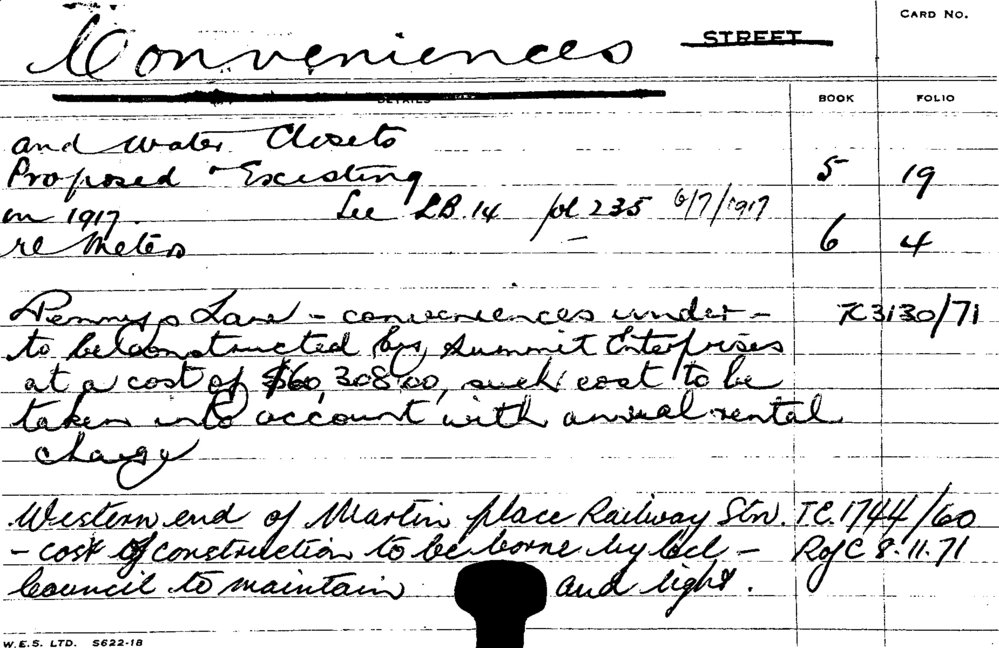 CARD NO.
Conveniences STREET
DETAILS BOOK FOLIO
and Water Closets
Proposed & Existing 5 19
in 1917. See L.B. 14 fol 235 6/7/1917
re Meters 6 4
Pennys Lane - conveniences under - TC3130/71
to be constructed by Summit Enterprises
at a cost of $60,308.00, such cost to be
taken into account with annual rental
charge
Western end of Martin place Railway Stn. TC.1744/60
- cost of construction to be borne by - RofC 8.11.71
Council to maintain and light.
W.E.S. LTD. S622-18